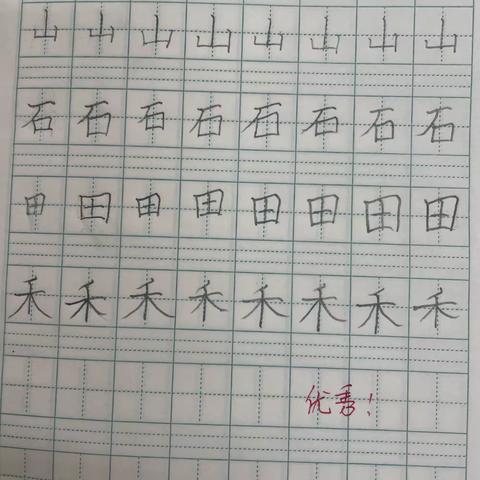 山山山山山山山山
石石石石石石石石
田田田田田田田田
禾禾禾禾禾禾禾禾
优秀！